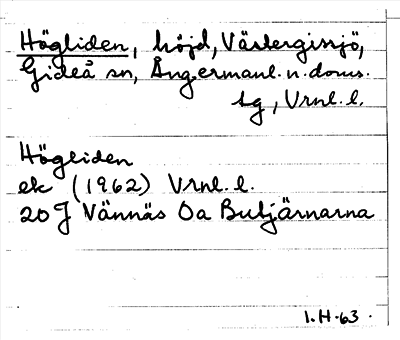 Högliden, höjd, Västergissjö,
Gideå sn, Ångermanl. n. doms.
tg, Vrnl. l.
Högliden
ek (1962) Vrnl. l.
20 J Vännäs Oa Butjärnarna
I.H.63.